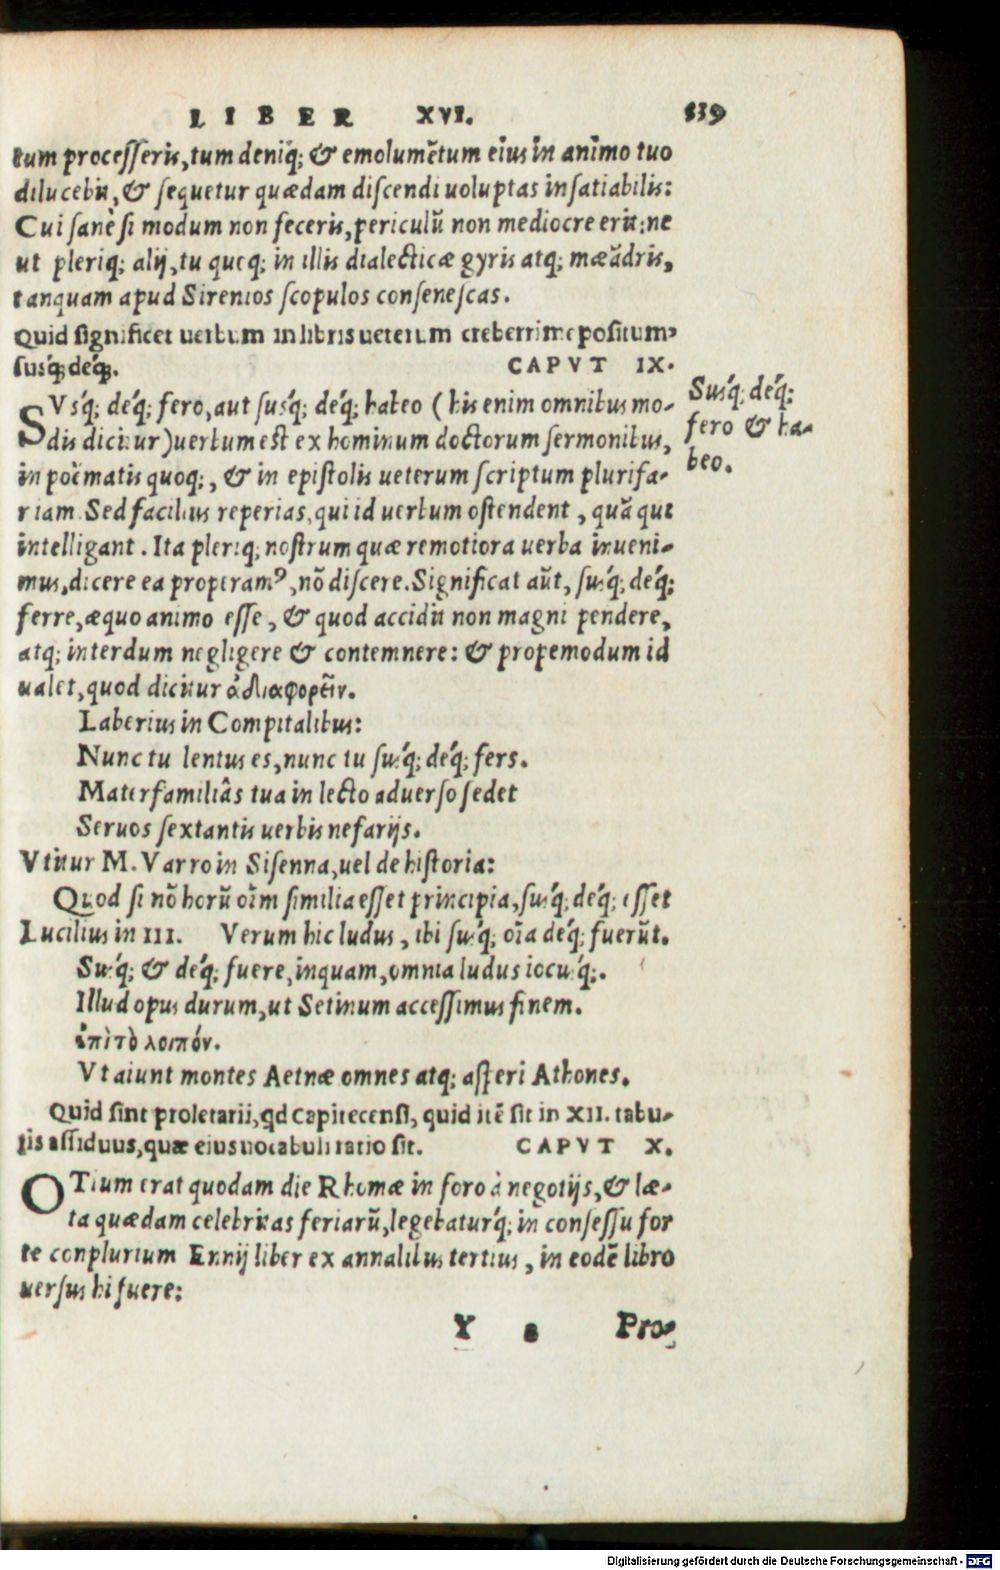 LIBER XVI. 519
tum processeris, tum deniq́; & emolumētum eius in animo tuo
dilucebit, & sequetur quædam discendi uoluptas insatiabilis:
Cui sanè si modum non feceris, periculū non mediocre erit: ne
ut pleriq; alij, tu quoq; in illis dialecticæ gyris atq; mæādris,
tanquam apud Sirenios scopulos consenescas.
Quid significet uerbum in libris ueterum creberrime positum,
susq́; deq́;. CAPVT IX.
Susq́; deq́;
fero & ha-
beo.
SVsq́; deq́; fero, aut susq́; deq́; habeo (his enim omnibus mo-
dis dicitur) uerbum est ex hominum doctorum sermonibus,
in poëmatis quoq;, & in epistolis ueterum scriptum plurifa-
riam. Sed facilius reperias, qui id uerbum ostendent, quā qui
intelligant. Ita pleriq; nostrum quæ remotiora uerba inueni-
mus, dicere ea properamꝰ, nō discere. Significat aūt, susq́; deq́;
ferre, æquo animo esse, & quod accidit non magni pendere,
atq; interdum negligere & contemnere: & propemodum id
ualet, quod dicitur ἀδιαφορεῖν.
Laberius in Compitalibus:
Nunc tu lentus es, nunc tu susq́; deq́; fers.
Materfamiliâs tua in lecto aduerso sedet
Seruos sextantis uerbis nefarijs.
Vtitur M. Varro in Sisenna, uel de historia:
Quod si nō horū oīm similia esset principia, susq́; deq́; esset
Lucilius in III. Verum hic ludus, ibi susq́; oīa deq́; fuerūt.
Susq́; & deq́; fuere, inquam, omnia ludus iocusq́;.
Illud opus durum, ut Setinum accessimus finem.
ἐπὶ τὸ λοιπόν.
Vt aiunt montes Aetnæ omnes atq; asperi Athones.
Quid sint proletarii, qd capitecensi, quid itē sit in XII. tabu-
lis assiduus, quæ eius uocabuli ratio sit. CAPVT X.
OTium erat quodam die Rhomæ in foro à negotijs, & læ-
ta quædam celebritas feriarū, legebaturq́; in consessu for
te conplurium Ennij liber ex annalibus tertius, in eodē libro
uersus hi fuere:
Y 8 Pro-
Digitalisierung gefördert durch die Deutsche Forschungsgemeinschaft - DFG